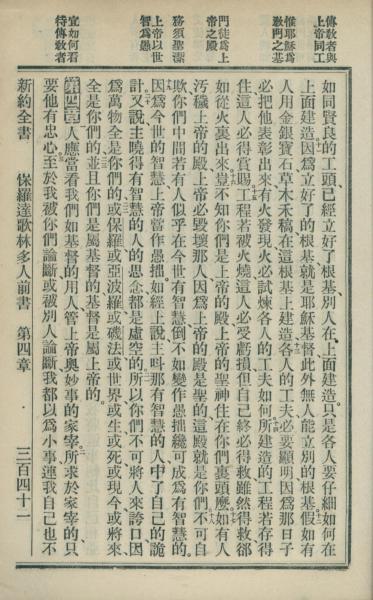 傳敎者與
上帝同工
惟耶穌爲
敎門之基
門徒爲上
帝之殿
務須聖潔
上帝以世
智爲愚
宜如何看
待傳敎者
如同賢良的工頭已經立好了的根基別人在上面建造只是各人要仔細如何在
上面建造因爲立好了的根基就是耶穌基督此外無人能立別的根基假如有
人用金銀寶石草木禾稿在這根基上建造各人的工夫必要顯明因爲那日子
必把他表彰出來有火發現火必試煉各人的工夫如何所建造的工程若存得
住這人必得賞賜工程若被火燒這人必受虧損但自己終必得救雖然得救郤
如從火裏出來豈不知你們是上帝的殿上帝的聖神住在你們裏頭麼如有人
汚穢上帝的殿上帝必毀壞那人因爲上帝的殿是聖的這殿就是你們不可自
欺你們中間若有人似乎在今世有智慧倒不如變作愚拙纔可成爲有智慧的
因爲今世的智慧上帝當作愚拙如經上說主呌那有智慧的人中了自己的詭
計又說主曉得有智慧的人的思念都是虛空的所以你們不可將人來誇口因
爲萬物全是你們的或保羅或亞波羅或磯法或世界或生或死或現今或將來
全是你們的並且你們是屬基督的基督是屬上帝的
第四章人應當看我們如基督的用人管上帝奧妙事的家宰所求於家宰的只
要他有忠心至於我被你們論斷或被別人論斷我都以爲小事連我自己也不
新約全書 保羅達歌林多人前書 第四章 三百四十一